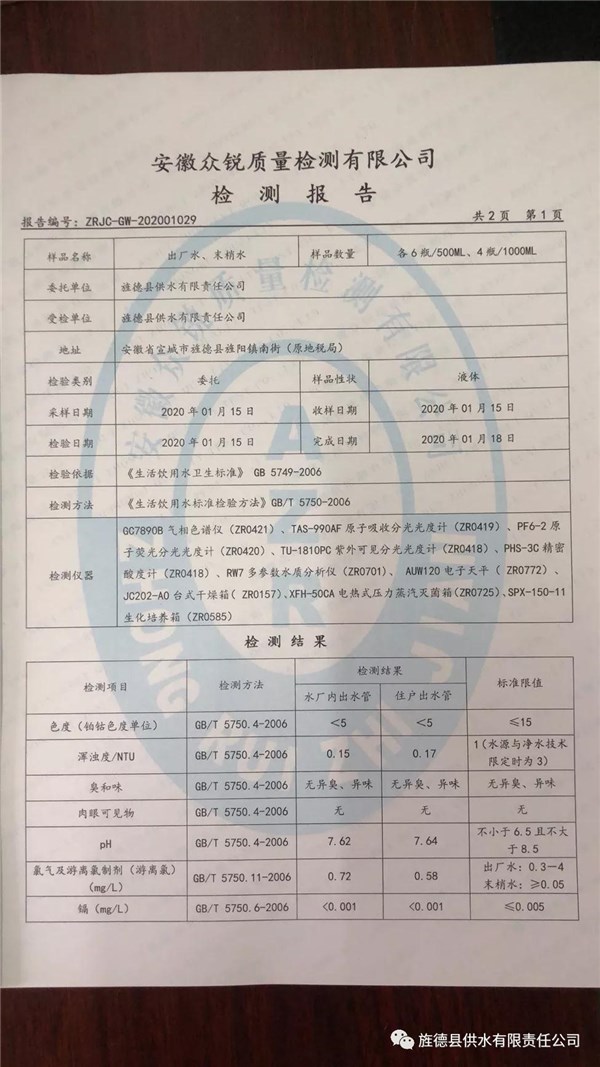 安徽众锐质量检测有限公司
检 测 报 告
报告编号：ZRJC-GW-202001029 共2页 第1页
样品名称 出厂水、末梢水 样品数量 各6瓶/500ML、4瓶/1000ML
委托单位 旌德县供水有限责任公司
受检单位 旌德县供水有限责任公司
地址 安徽省宣城市旌德县旌阳镇南街（原地税局）
检验类别 委托 样品性状 液体
采样日期 2020年01月15日 收样日期 2020年01月15日
检验日期 2020年01月15日 完成日期 2020年01月18日
检验依据 《生活饮用水卫生标准》 GB 5749-2006
检测方法 《生活饮用水标准检验方法》GB/T 5750-2006
检测仪器 GC7890B气相色谱仪（ZR0421）、TAS-990AF原子吸收分光光度计（ZR0419）、PF6-2原
子荧光分光光度计（ZR0420）、TU-1810PC紫外可见分光光度计（ZR0418）、PHS-3C精密
酸度计（ZR0418）、RW7多参数水质分析仪（ZR0701）、 AUW120电子天平（ ZR0772）、
JC202-AO台式干燥箱（ ZR0157）、XFH-50CA电热式压力蒸汽灭菌箱（ZR0725）、SPX-150-11
生化培养箱（ZR0585）
检 测 结 果
检测项目 检测方法 检测结果 标准限值
水厂内出水管 住户出水管
色度（铂钴色度单位） GB/T 5750.4-2006 <5 <5 ≤15
浑浊度/NTU GB/T 5750.4-2006 0.15 0.17 1（水源与净水技术
限定时为3）
臭和味 GB/T 5750.4-2006 无异臭、异味 无异臭、异味 无异臭、异味
肉眼可见物 GB/T 5750.4-2006 无 无 无
pH GB/T 5750.4-2006 7.62 7.64 不小于6.5且不大
于8.5
氯气及游离氯制剂（游离氯）
（mg/L） GB/T 5750.11-2006 0.72 0.58 出厂水：0.3—4
末梢水：≥0.05
镉（mg/L） GB/T 5750.6-2006 <0.001 <0.001 ≤0.005
旌德县供水有限责任公司